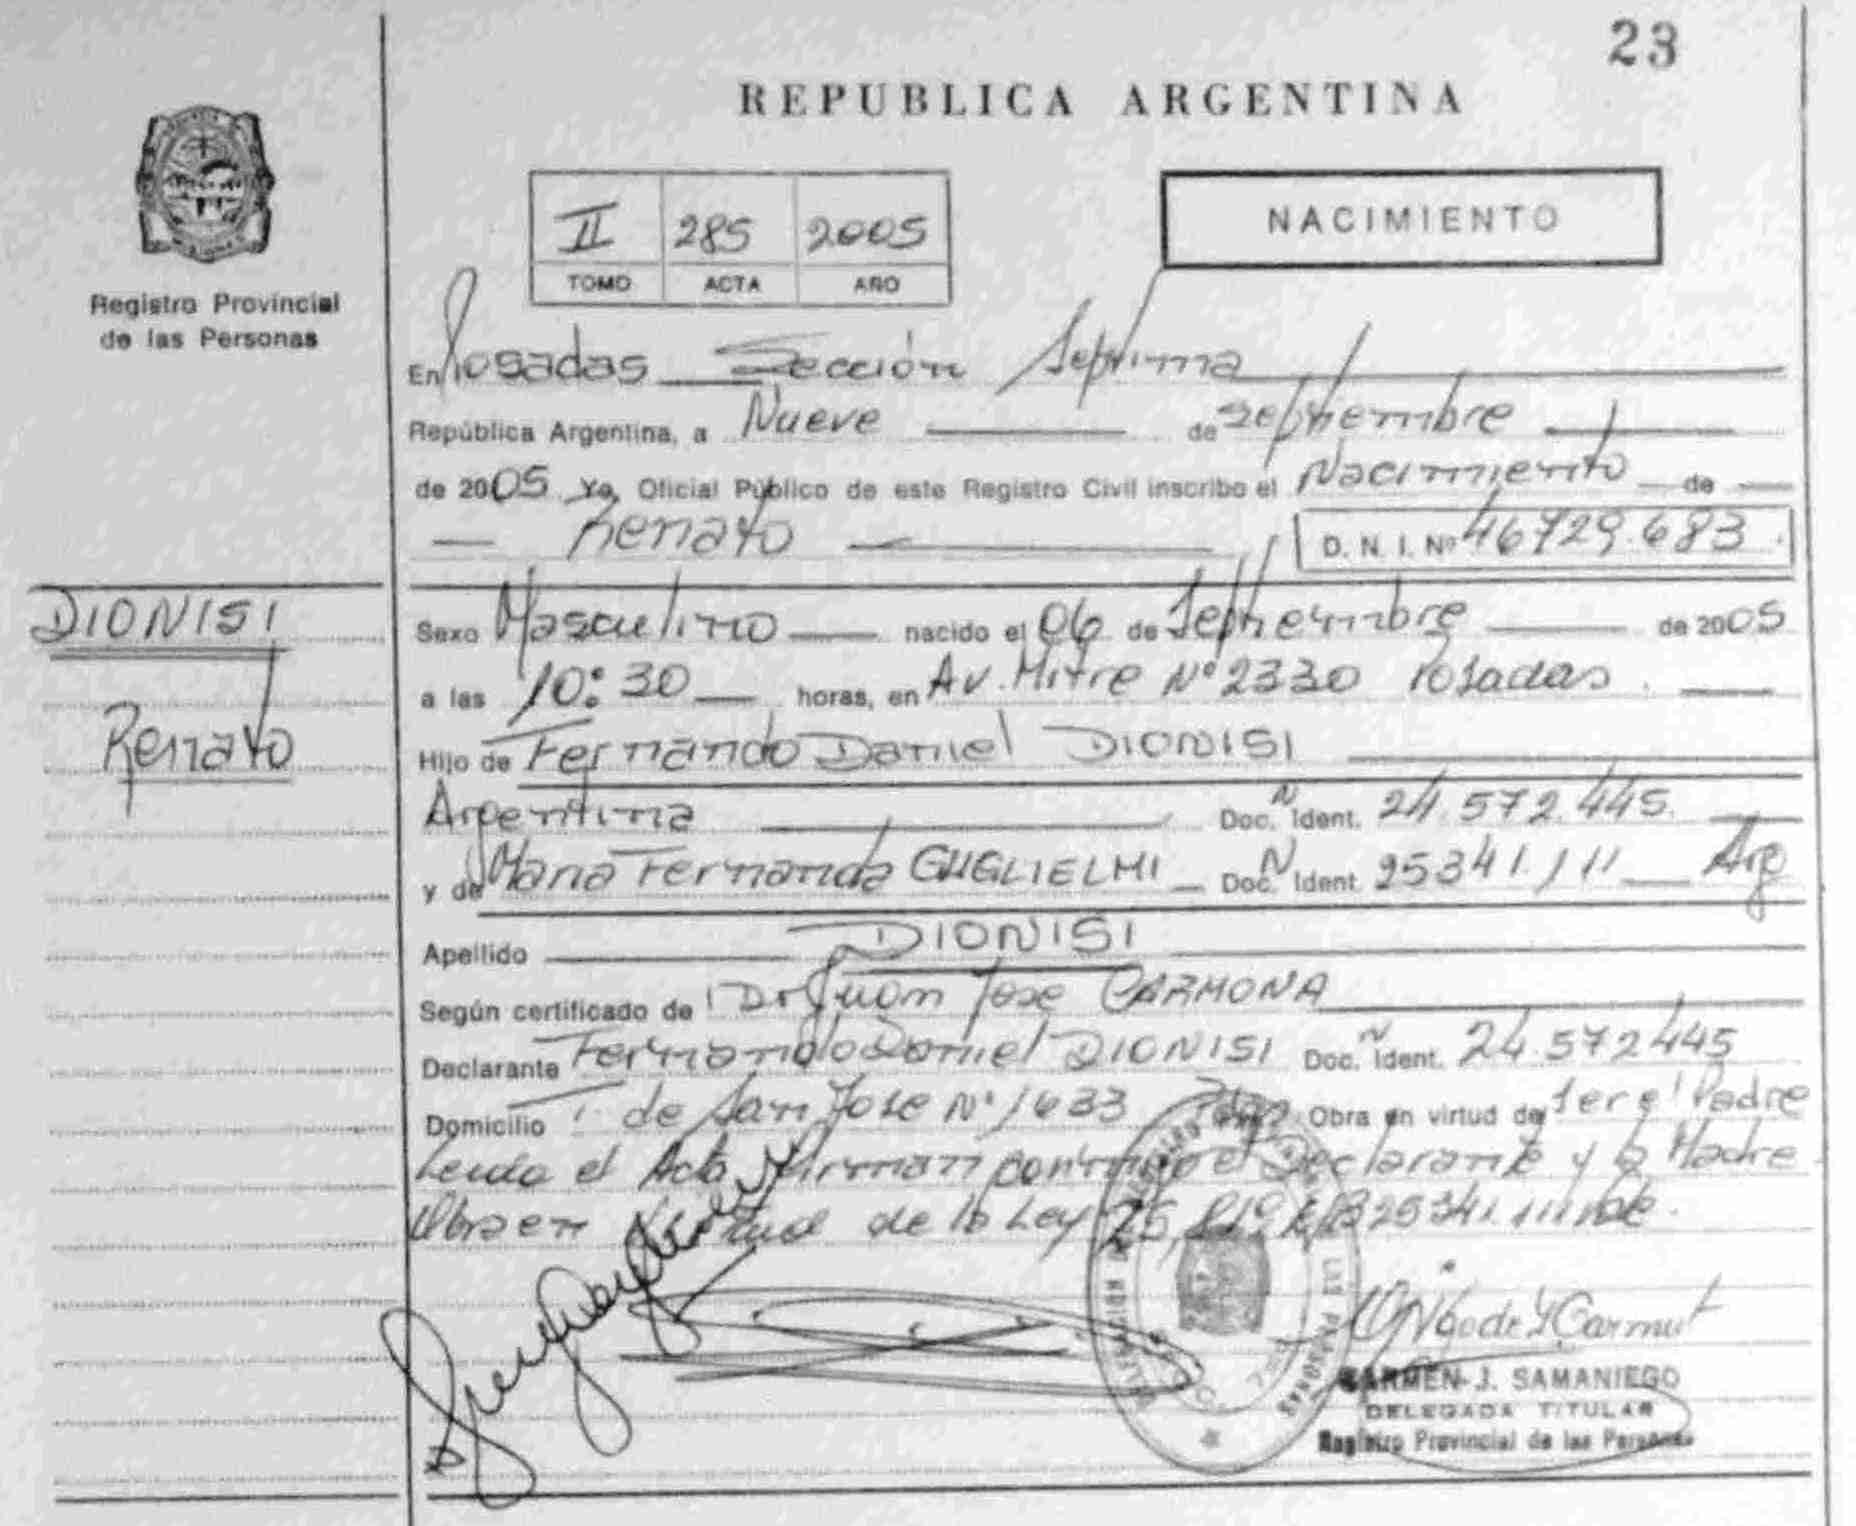 23
REPUBLICA ARGENTINA
II 285 2005
TOMO ACTA AÑO
NACIMIENTO
Registro Provincial
de las Personas
En Posadas Sección Septima
República Argentina, a Nueve de Septiembre
de 2005 Yo, Oficial Público de este Registro Civil inscribo el Nacimiento de
Renato D. N. I. Nº 46729.683
DIONISI
Renato
Sexo Masculino nacido el 06 de Septiembre de 2005
a las 10:30 horas, en Av. Mitre Nº 2330 Posadas.
Hijo de Fernando Daniel DIONISI
Argentina Doc. N Ident. 24.572.445.
y de Maria Fernanda GUGLIELMI Doc. N Ident. 25341.111 Arg
Apellido DIONISI
Según certificado de Dr Juan Jose CARMONA
Declarante Fernando Daniel DIONISI Doc. N Ident. 24.572445
Domicilio de San Jose Nº 1633 Obra en virtud de ser el Padre
Leida el Acta Firman conmigo el Declarante y la Madre
Obra en Virtud de la Ley
CARMEN J. SAMANIEGO
DELEGADA TITULAR
Registro Provincial de las Personas